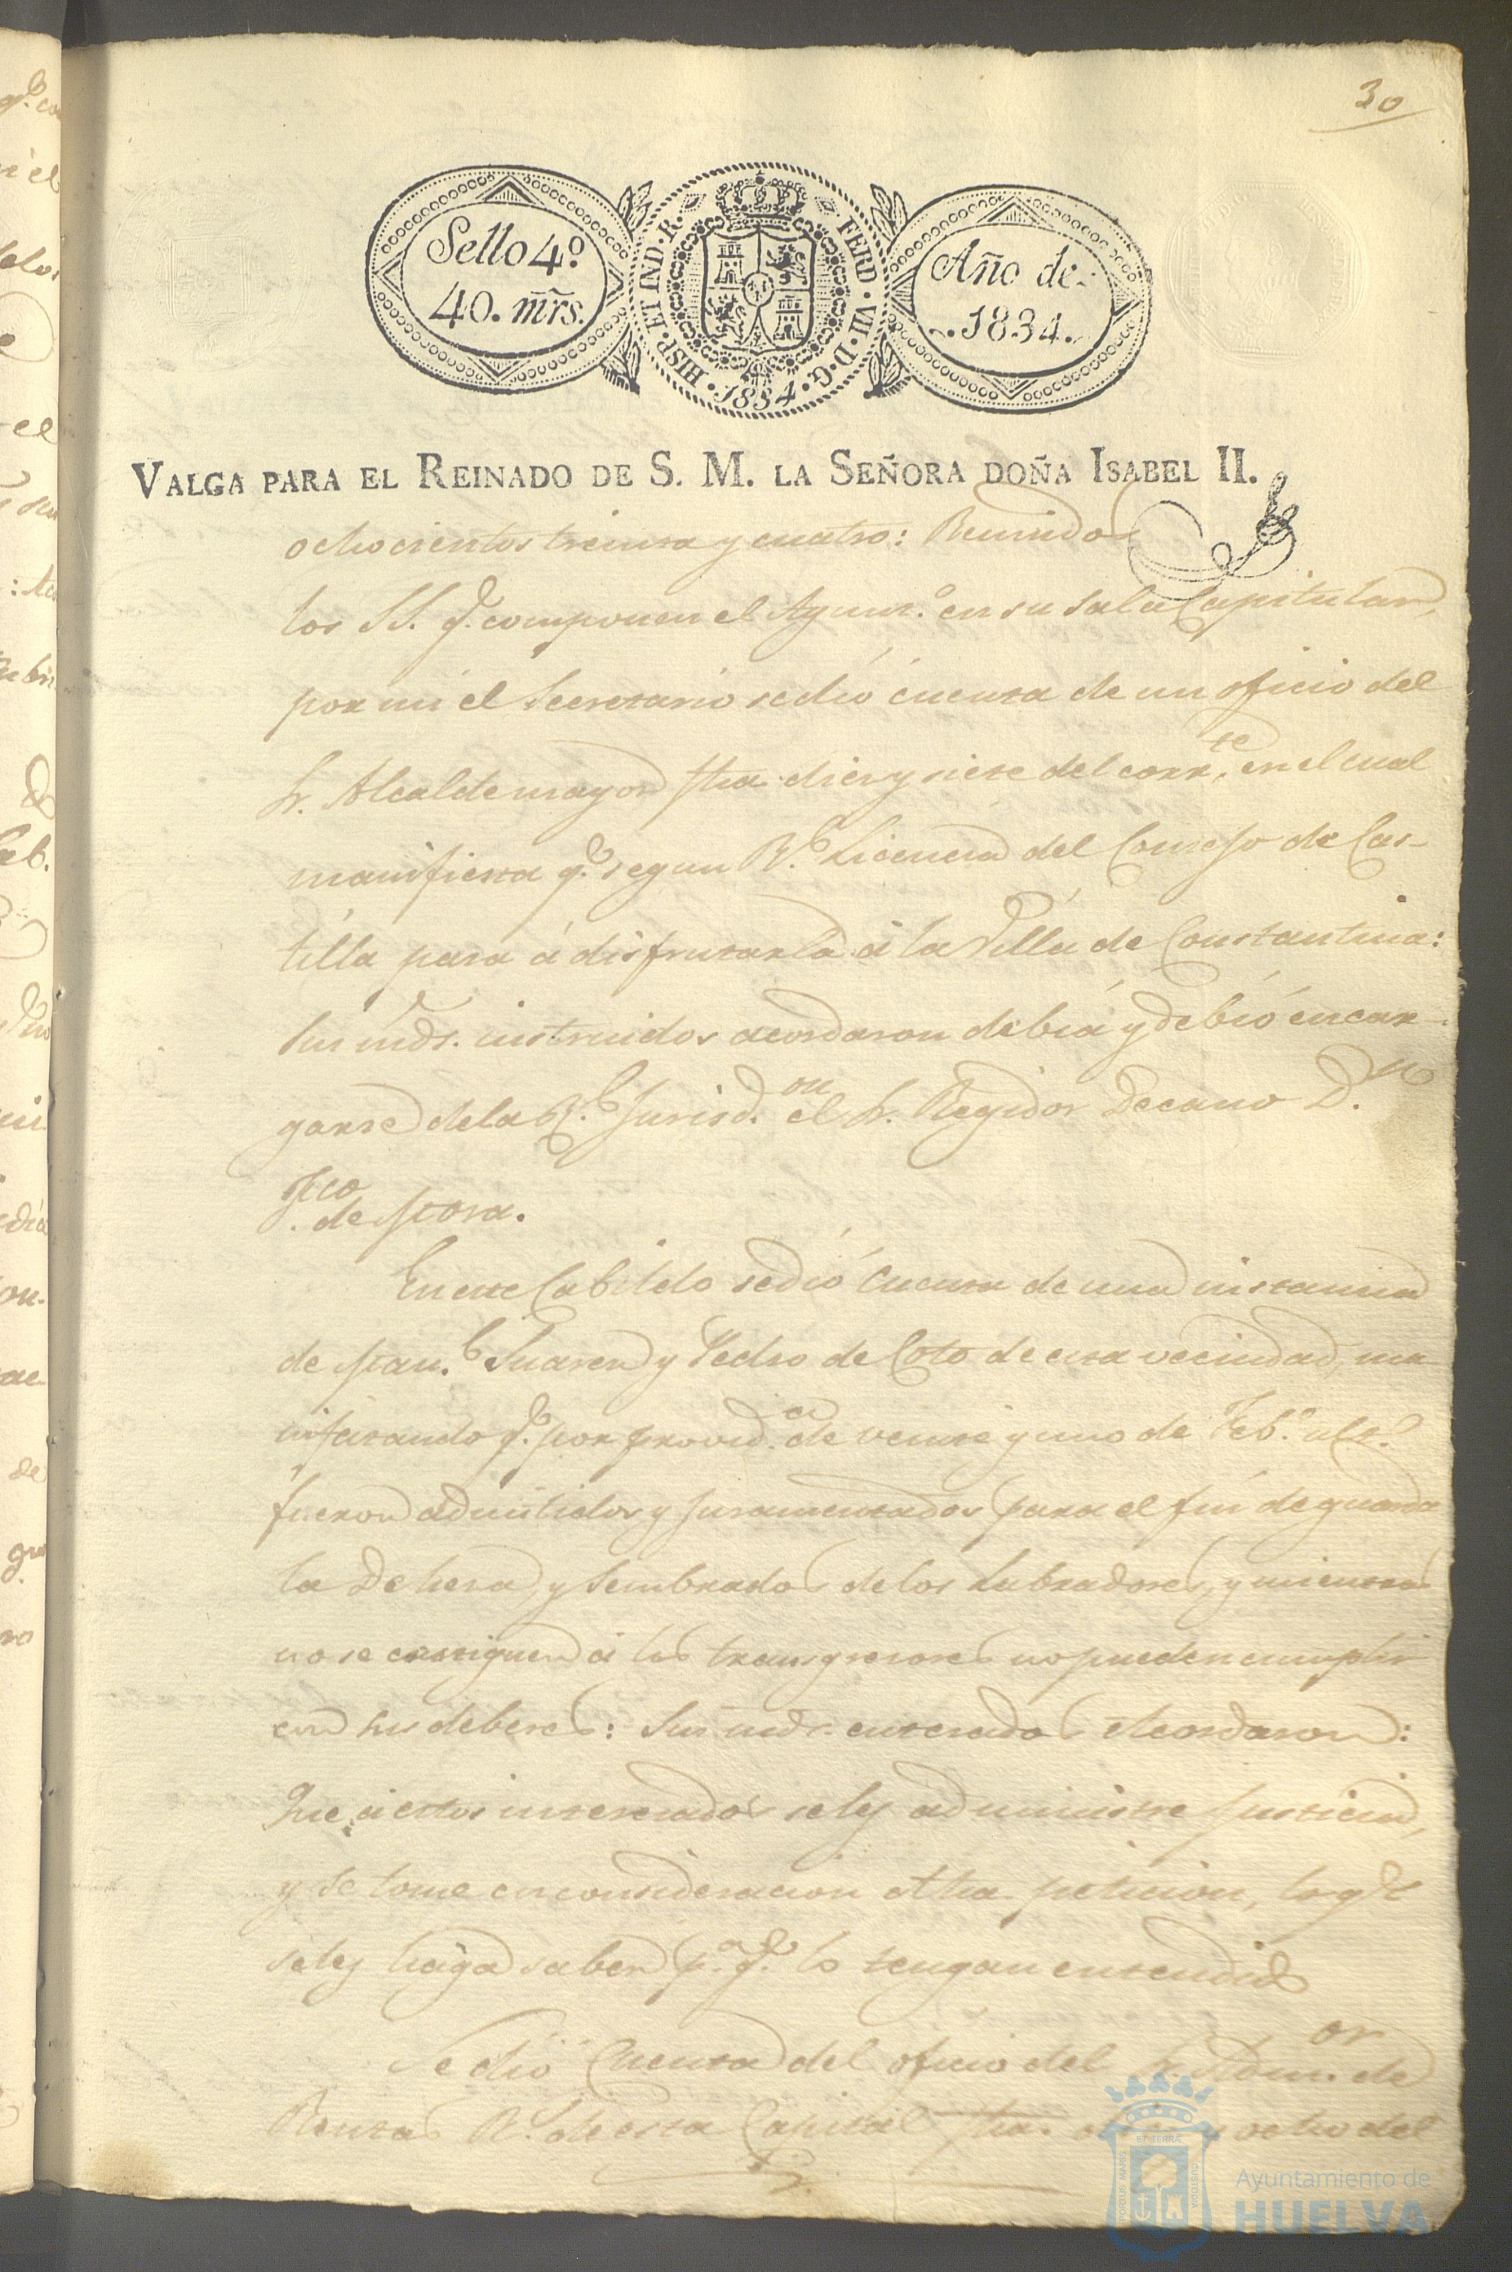 30
Sello 4º
40. mrs.
HISP. ET IND. R. FERD. VII. D. G. 1834.
Año de
1834.
VALGA PARA EL REINADO DE S. M. LA SEÑORA DOÑA ISABEL II.
ochocientos treinta y cuatro: Reunidos
los SS. q.e componen el Ayunt.º en su Sala Capitular,
por mi el Secretario se dió cuenta de un oficio del
Sr. Alcalde mayor fha. diez y siete del corr.te, en el cual
manifiesta q.e segun R.l Licencia del Consejo de Cas-
tilla pasa á disfrutarla á la Villa de Constantina:
Sus mds. instruidos acordaron debia y debió encar-
garse de la R.l Jurisd.on el Sr. Regidor Decano D.n
Fco. de Mora.
En este Cabildo se dió Cuenta de una instancia
de Man.l Suarez y Pedro de Coto de esta vecindad, ma-
nifestando q.e por provid.a de veinte y uno de Feb.º ult.º
fueron admitidos y juramentados para el fin de guardar
la Dehesa, y Sembrados de los Labradores, y mientras
no se castiguen á los transgresores no pueden cumplir
con sus deberes: Sus mds. enterados Acordaron:
Que á estos interesados se les administre justicia,
y se tome en consideracion dha. peticion, lo q.e
se les haga saber p.a q.e lo tengan entendido
Se dió Cuenta del oficio del Sr. Adm.or de
Rentas R.s de esta Capital fha. diez y ocho del
PORTUS MARIS ET TERRÆ CUSTODIA
Ayuntamiento de
HUELVA